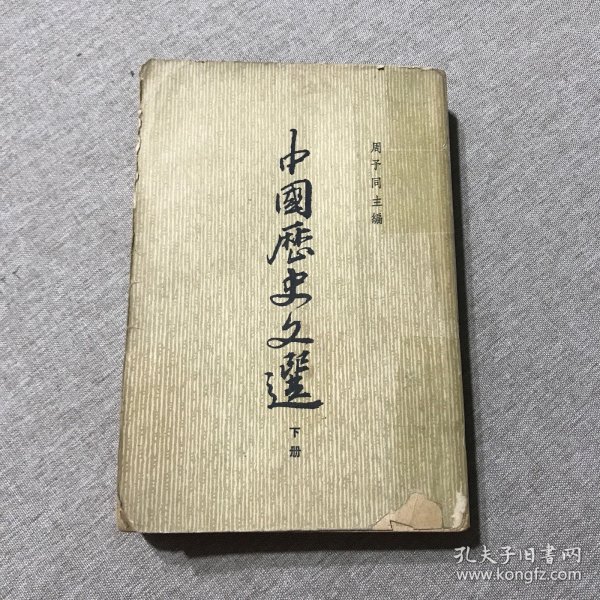 周予同主編
中國歷史文選
下册
孔夫子旧書网
www.kongfz.com